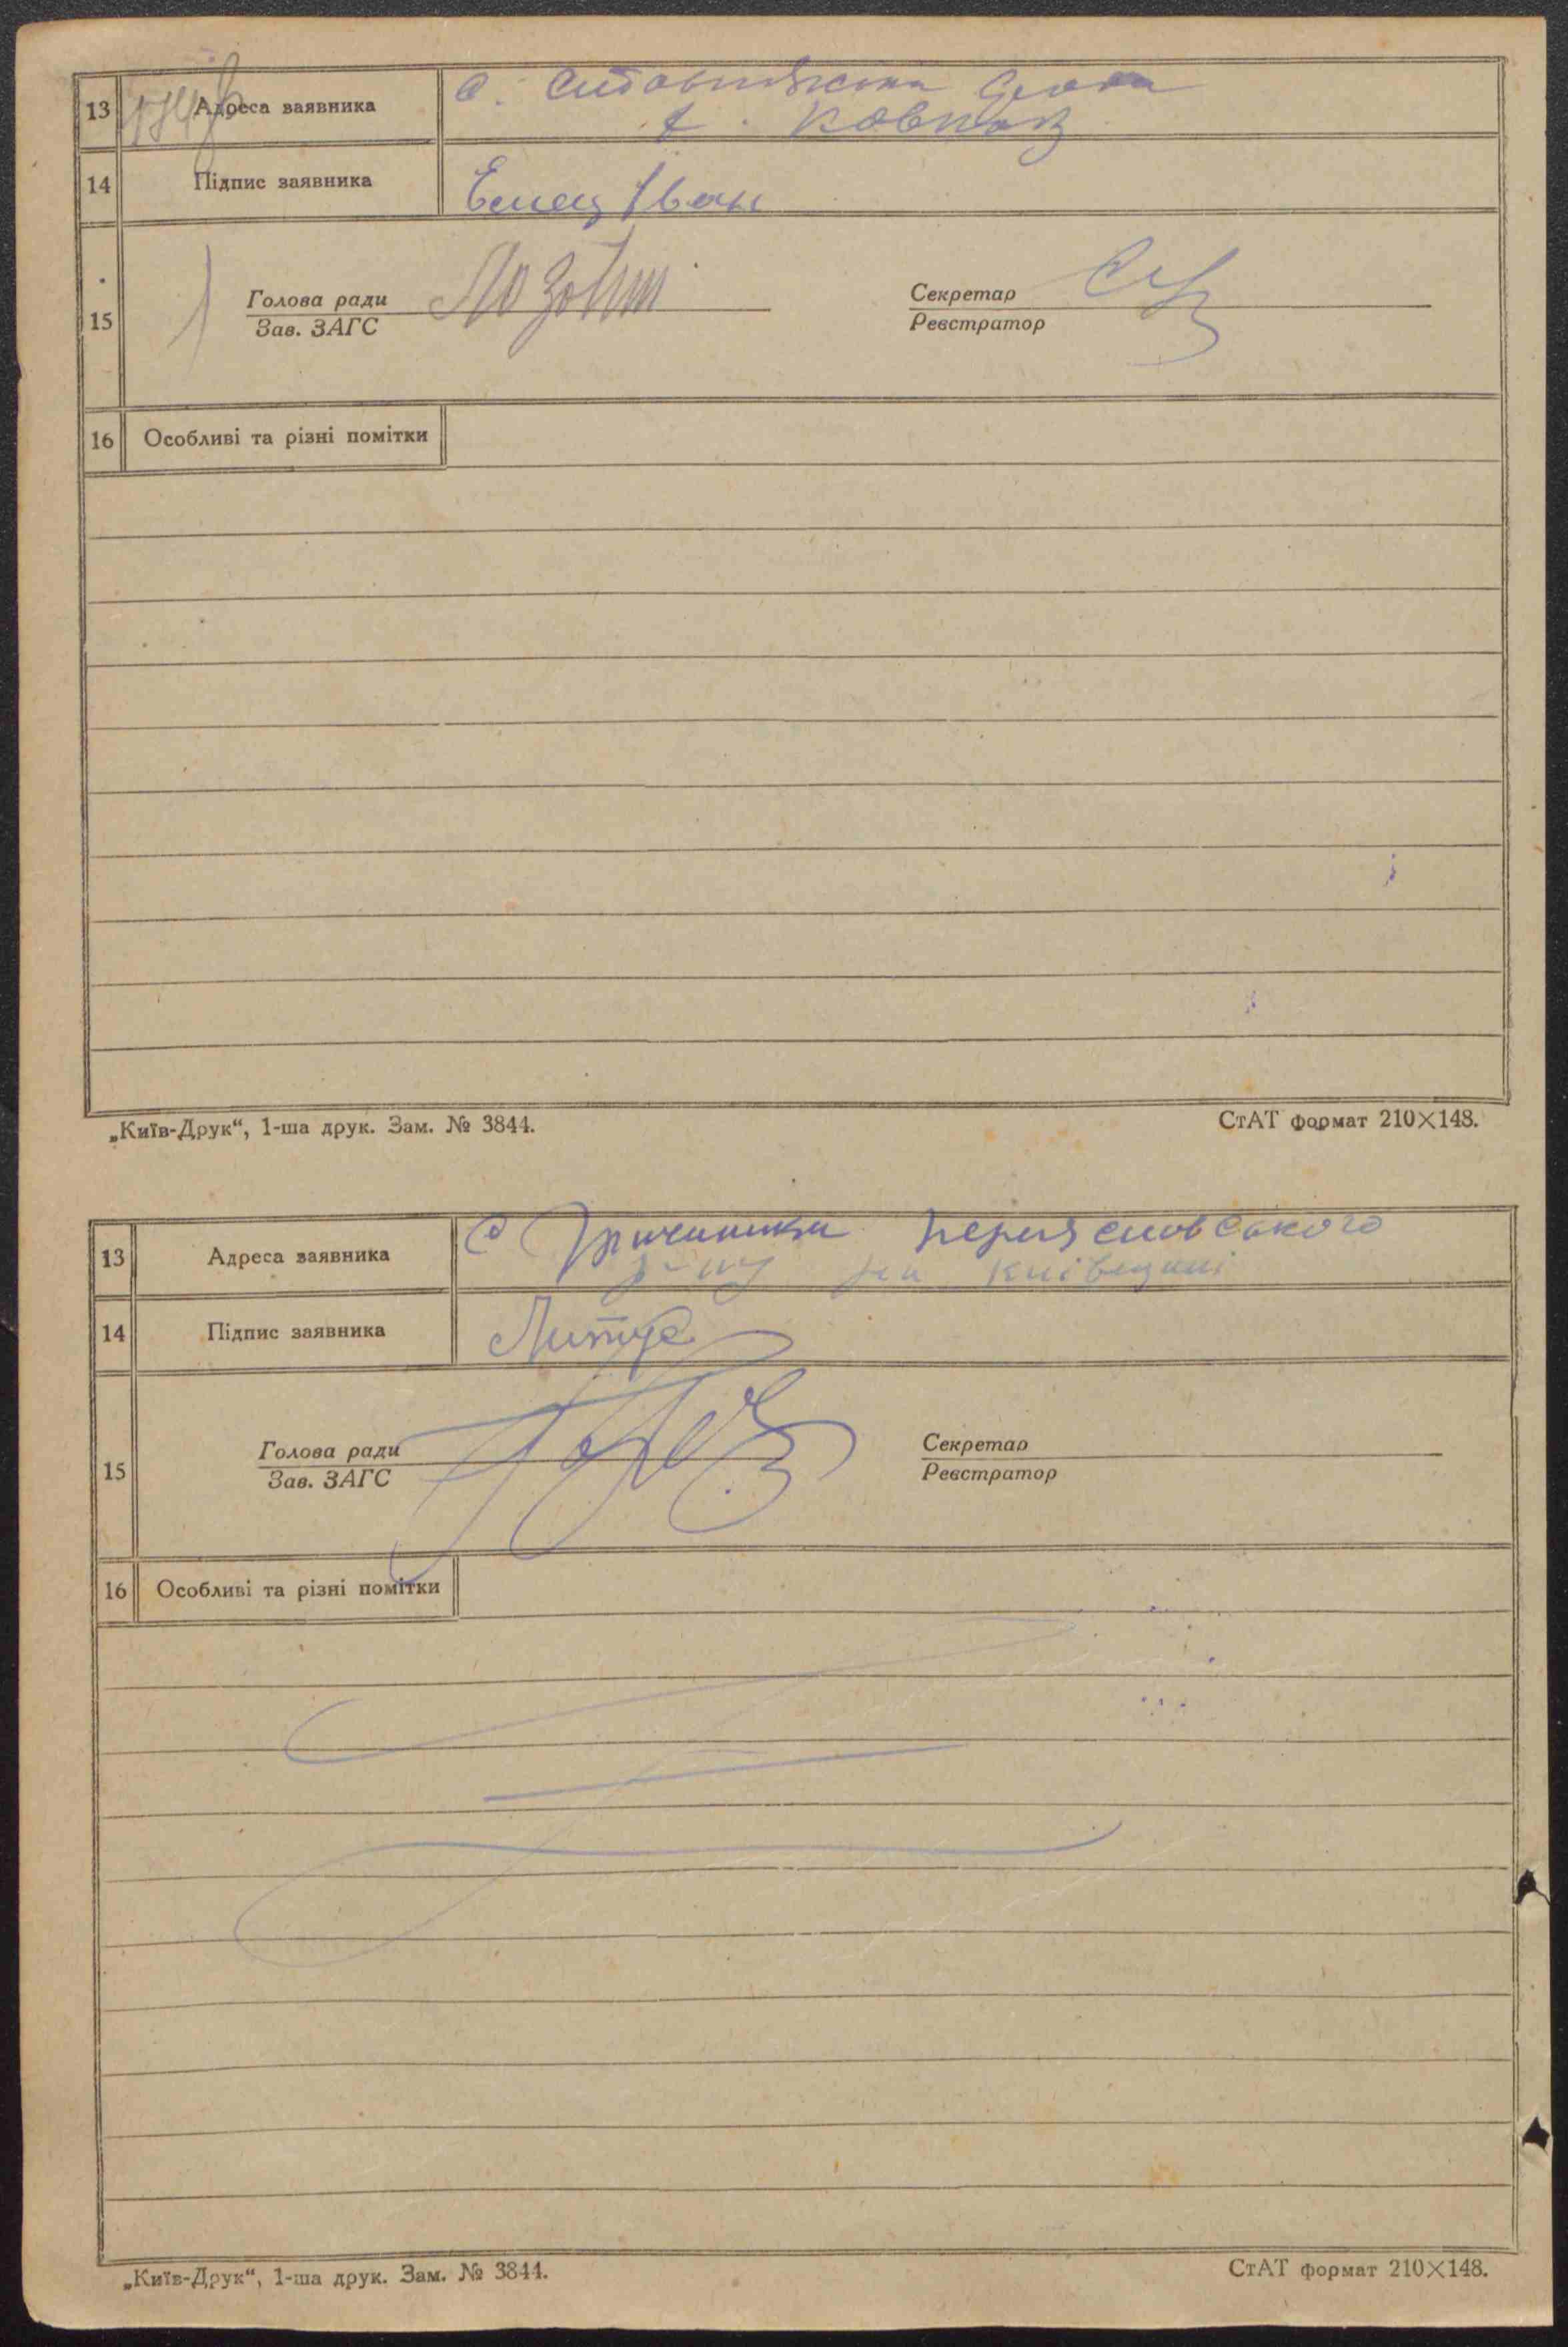 13 Адреса заявника с.
х. Ковпак
14 Підпис заявника Емец Іван
Голова ради Секретар
15
Зав. ЗАГС Реєстратор
16 Особливі та різні помітки
„Київ-Друк“, 1-ша друк. Зам. № 3844. СтАТ формат 210×148.
13 Адреса заявника с
р-ну на Київщині
14 Підпис заявника
Голова ради Секретар
15
Зав. ЗАГС Реєстратор
16 Особливі та різні помітки
„Київ-Друк“, 1-ша друк. Зам. № 3844. СтАТ формат 210×148.